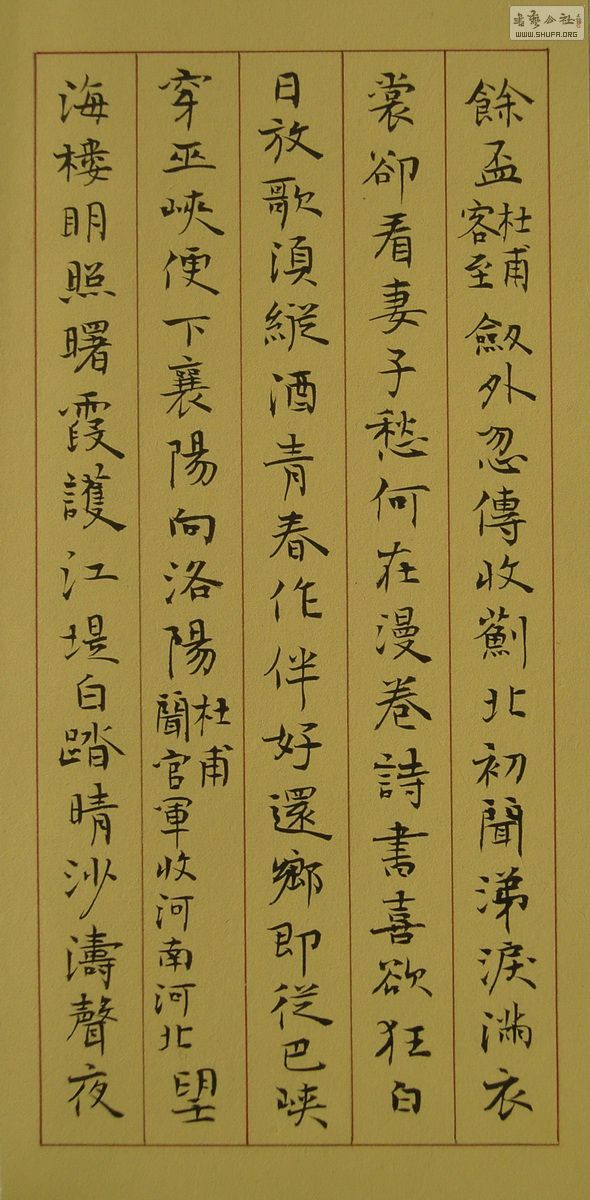 餘盃杜甫客至劒外忽傳收薊北初聞涕淚滿衣
裳卻看妻子愁何在漫卷詩書喜欲狂白
日放歌須縱酒青春作伴好還鄉即從巴峽
穿巫峽便下襄陽向洛陽杜甫聞官軍收河南河北望
海樓明照曙霞護江堤白踏晴沙濤聲夜
書藝公社
WWW.SHUFA.ORG